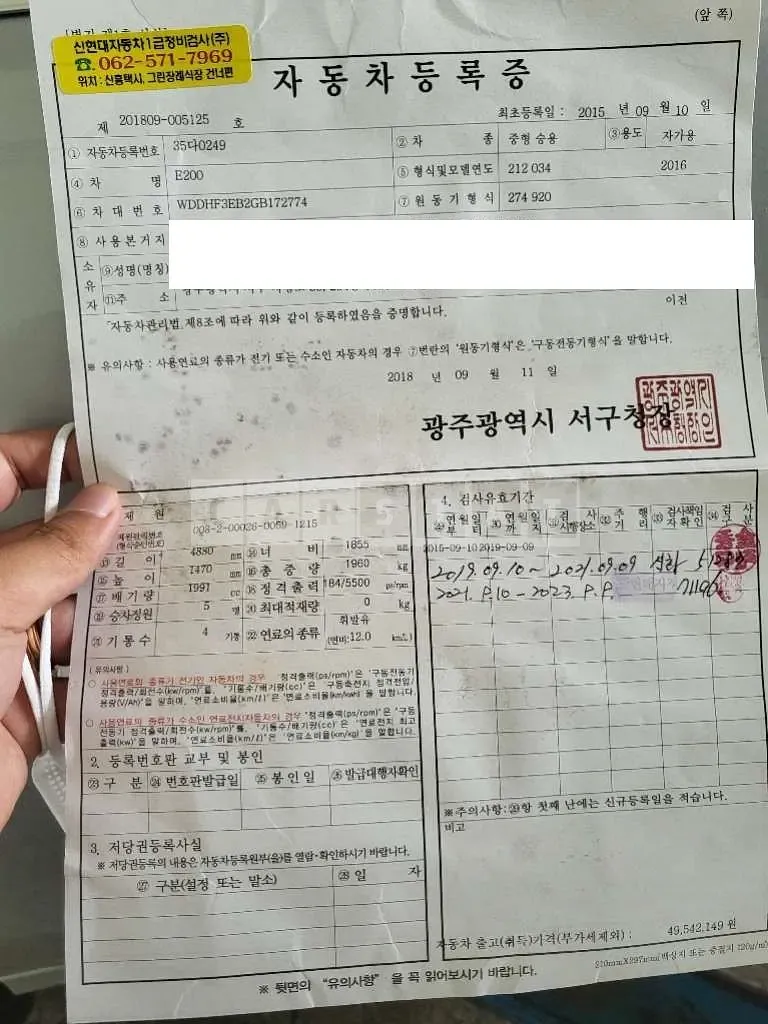 (앞 쪽)
신현대자동차1급정비검사(주)
☎. 062-571-7969
위치 : 신흥택시, 그린장례식장 건너편
자 동 차 등 록 증
제 201809-005125 호
최초등록일 : 2015 년 09 월 10 일
① 자동차등록번호 35다0249 ② 차 종 중형 승용 ③용도 자가용
④ 차 명 E200 ⑤ 형식및모델연도 212 034 2016
⑥ 차 대 번 호 WDDHF3EB2GB172774 ⑦ 원 동 기 형 식 274 920
⑧ 사 용 본 거 지
소 유 자
⑨성명(명칭)
⑪주 소
이전
「자동차관리법」제8조에 따라 위와 같이 등록하였음을 증명합니다.
※ 유의사항 : 사용연료의 종류가 전기 또는 수소인 자동차의 경우 ⑦번란의 '원동기형식'은 '구동전동기형식'을 말합니다.
2018 년 09 월 11 일
광주광역시 서구청장
제 원
제원관리번호 (형식승인번호) 008-2-00026-0069-1215
⑬ 길 이 4880 mm ⑭ 너 비 1855 mm
⑮ 높 이 1470 mm ⑯ 총 중 량 1960 kg
⑰ 배 기 량 1991 cc ⑱ 정 격 출 력 184/5500 ps/rpm
⑲ 승차정원 5 명 ⑳ 최대적재량 0 kg
㉑ 기 통 수 4 기통 ㉒ 연료의 종류 휘발유 (연비:12.0 km/L)
( 유의사항 )
○ 사용연료의 종류가 전기인 자동차의 경우 "정격출력(ps/rpm)"은 "구동전동기
정격출력/회전수(kw/rpm)"를, "기통수/배기량(cc)"은 "구동축전지 정격전압/
용량(V/Ah)"을 말하며, "연료소비율(km/ℓ)"은 "연료소비율(km/kwh)을 말합니다.
○ 사용연료의 종류가 수소인 연료전지자동차의 경우 "정격출력(ps/rpm)"은 "구동
전동기 정격출력/회전수(kw/rpm)"를, "기통수/배기량(cc)"은 "연료전지 최고
출력(kw)"을 말하며, "연료소비율(km/ℓ)"은 "연료소비율(km/kg)"을 말합니다.
2. 등록번호판 교부 및 봉인
㉓ 구 분 ㉔ 번호판발급일 ㉕ 봉 인 일 ㉖ 발급대행자확인
3. 저당권등록사실
※ 저당권등록의 내용은 자동차등록원부(을)를 열람·확인하시기 바랍니다.
㉗ 구분(설정 또는 말소) ㉘ 일 자
4. 검사유효기간
㉙ 연월일 부터 ㉚ 연월일 까지 ㉛ 검 사 시행장소 ㉜ 주 행 거 리 ㉝ 검사책임 자확인 ㉞ 검 사 구 분
2015-09-10 2019-09-09
2019.09.10 ~ 2021.09.09
2021. 9.10 - 2023. 9. 9.
※주의사항:㉙항 첫째 난에는 신규등록일을 적습니다.
비고
자동차 출고(취득)가격(부가세제외) : 49,542,149 원
210mm×297mm(백상지 또는 중질지 120g/㎡)
※ 뒷면의 "유의사항" 을 꼭 읽어보시기 바랍니다.